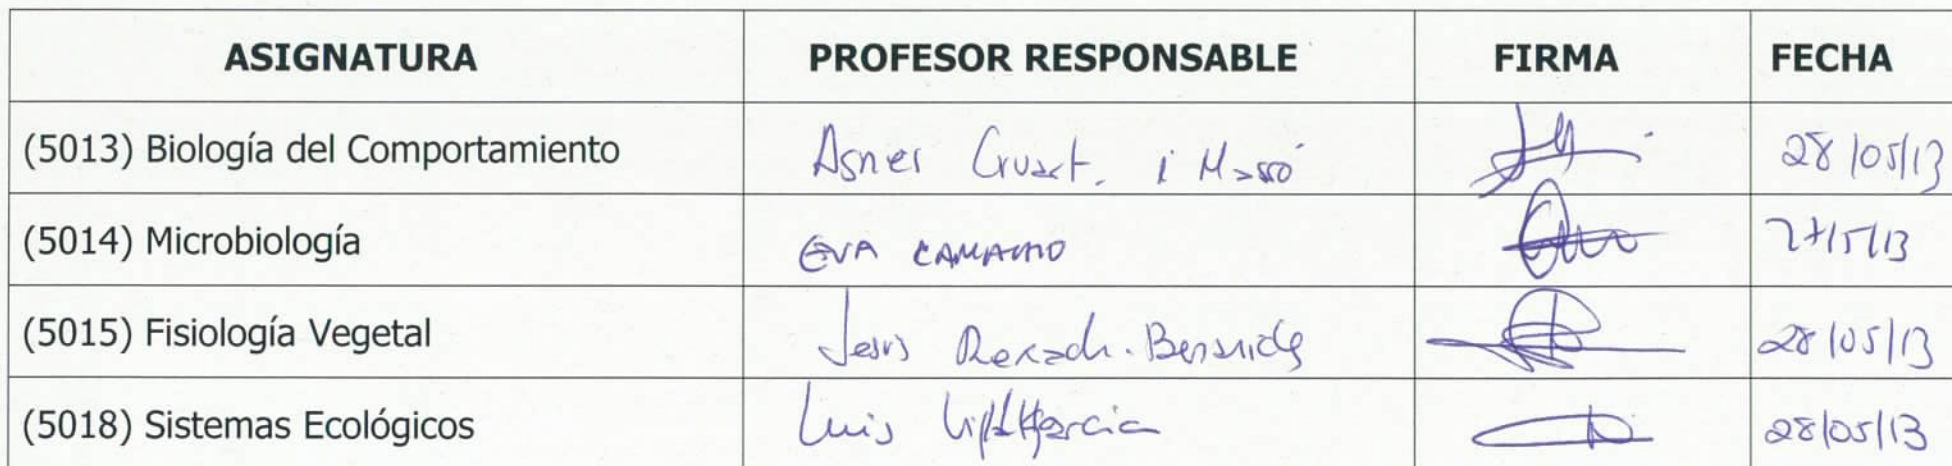 ASIGNATURA PROFESOR RESPONSABLE FIRMA FECHA
(5013) Biología del Comportamiento i Massó 28/05/13
(5014) Microbiología EVA CAMACHO 27/5/13
(5015) Fisiología Vegetal Jesús 28/05/13
(5018) Sistemas Ecológicos Luis 28/05/13